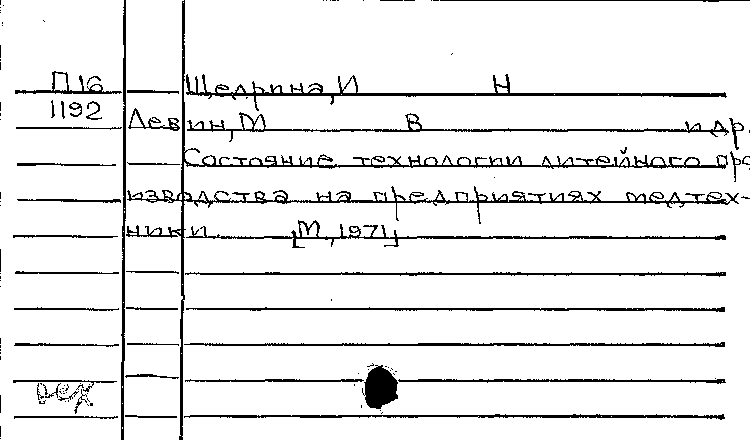 П16 Щедрина, И Н
1192 Левин, М В и др.
Состояние технологии литейного про
изводства на предприятиях медтех-
ники [М., 1971]